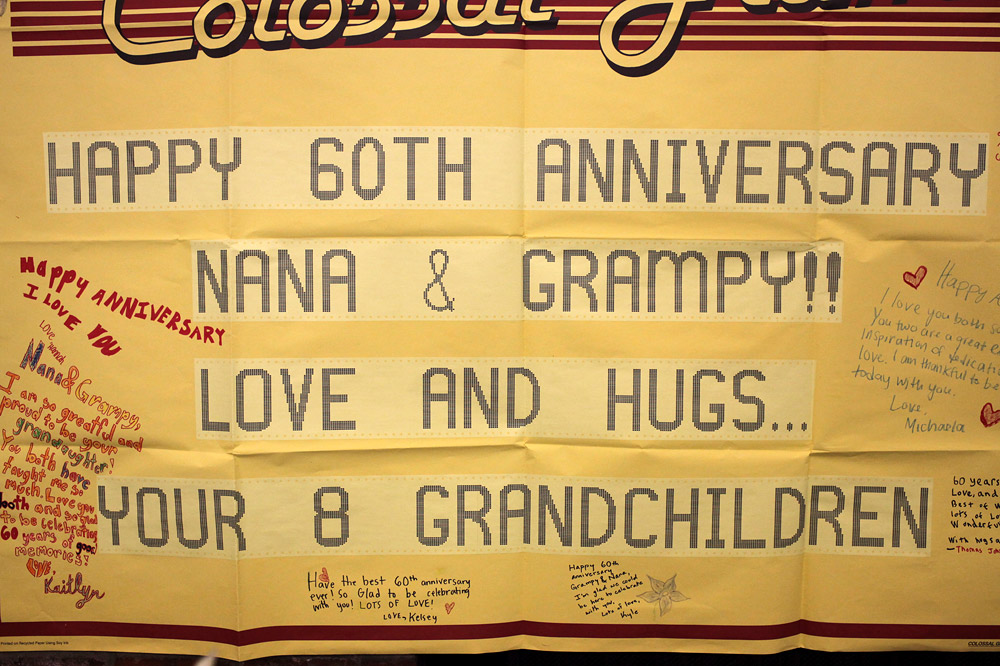 Colossal
HAPPY 60TH ANNIVERSARY
NANA & GRAMPY!!
LOVE AND HUGS...
YOUR 8 GRANDCHILDREN
HAPPY ANNIVERSARY
I LOVE YOU
Love, Hannah
Nana & Grampy,
I am so greatful and
proud to be your
grandaughter!
You both have
taught me so
much. Love you
both and so glad
to be celebrating
60 years of good
memories!
Kaitlyn
Have the best 60th anniversary
ever! So Glad to be celebrating
with you! LOTS OF LOVE!
LOVE, Kelsey
Happy 60th
anniversary
Grampy & Nana,
I'm glad we could
be here to celebrate
with you.
Lots of love,
Kyle
Happy
I love you both
You two are a great
inspiration of
love. I am thankful to be
today with you.
Love,
Michaela
60 years
Love, and
Best of
lots of
Wonderful
With
-Thomas
Printed on Recycled Paper Using Soy Ink
COLOSSAL